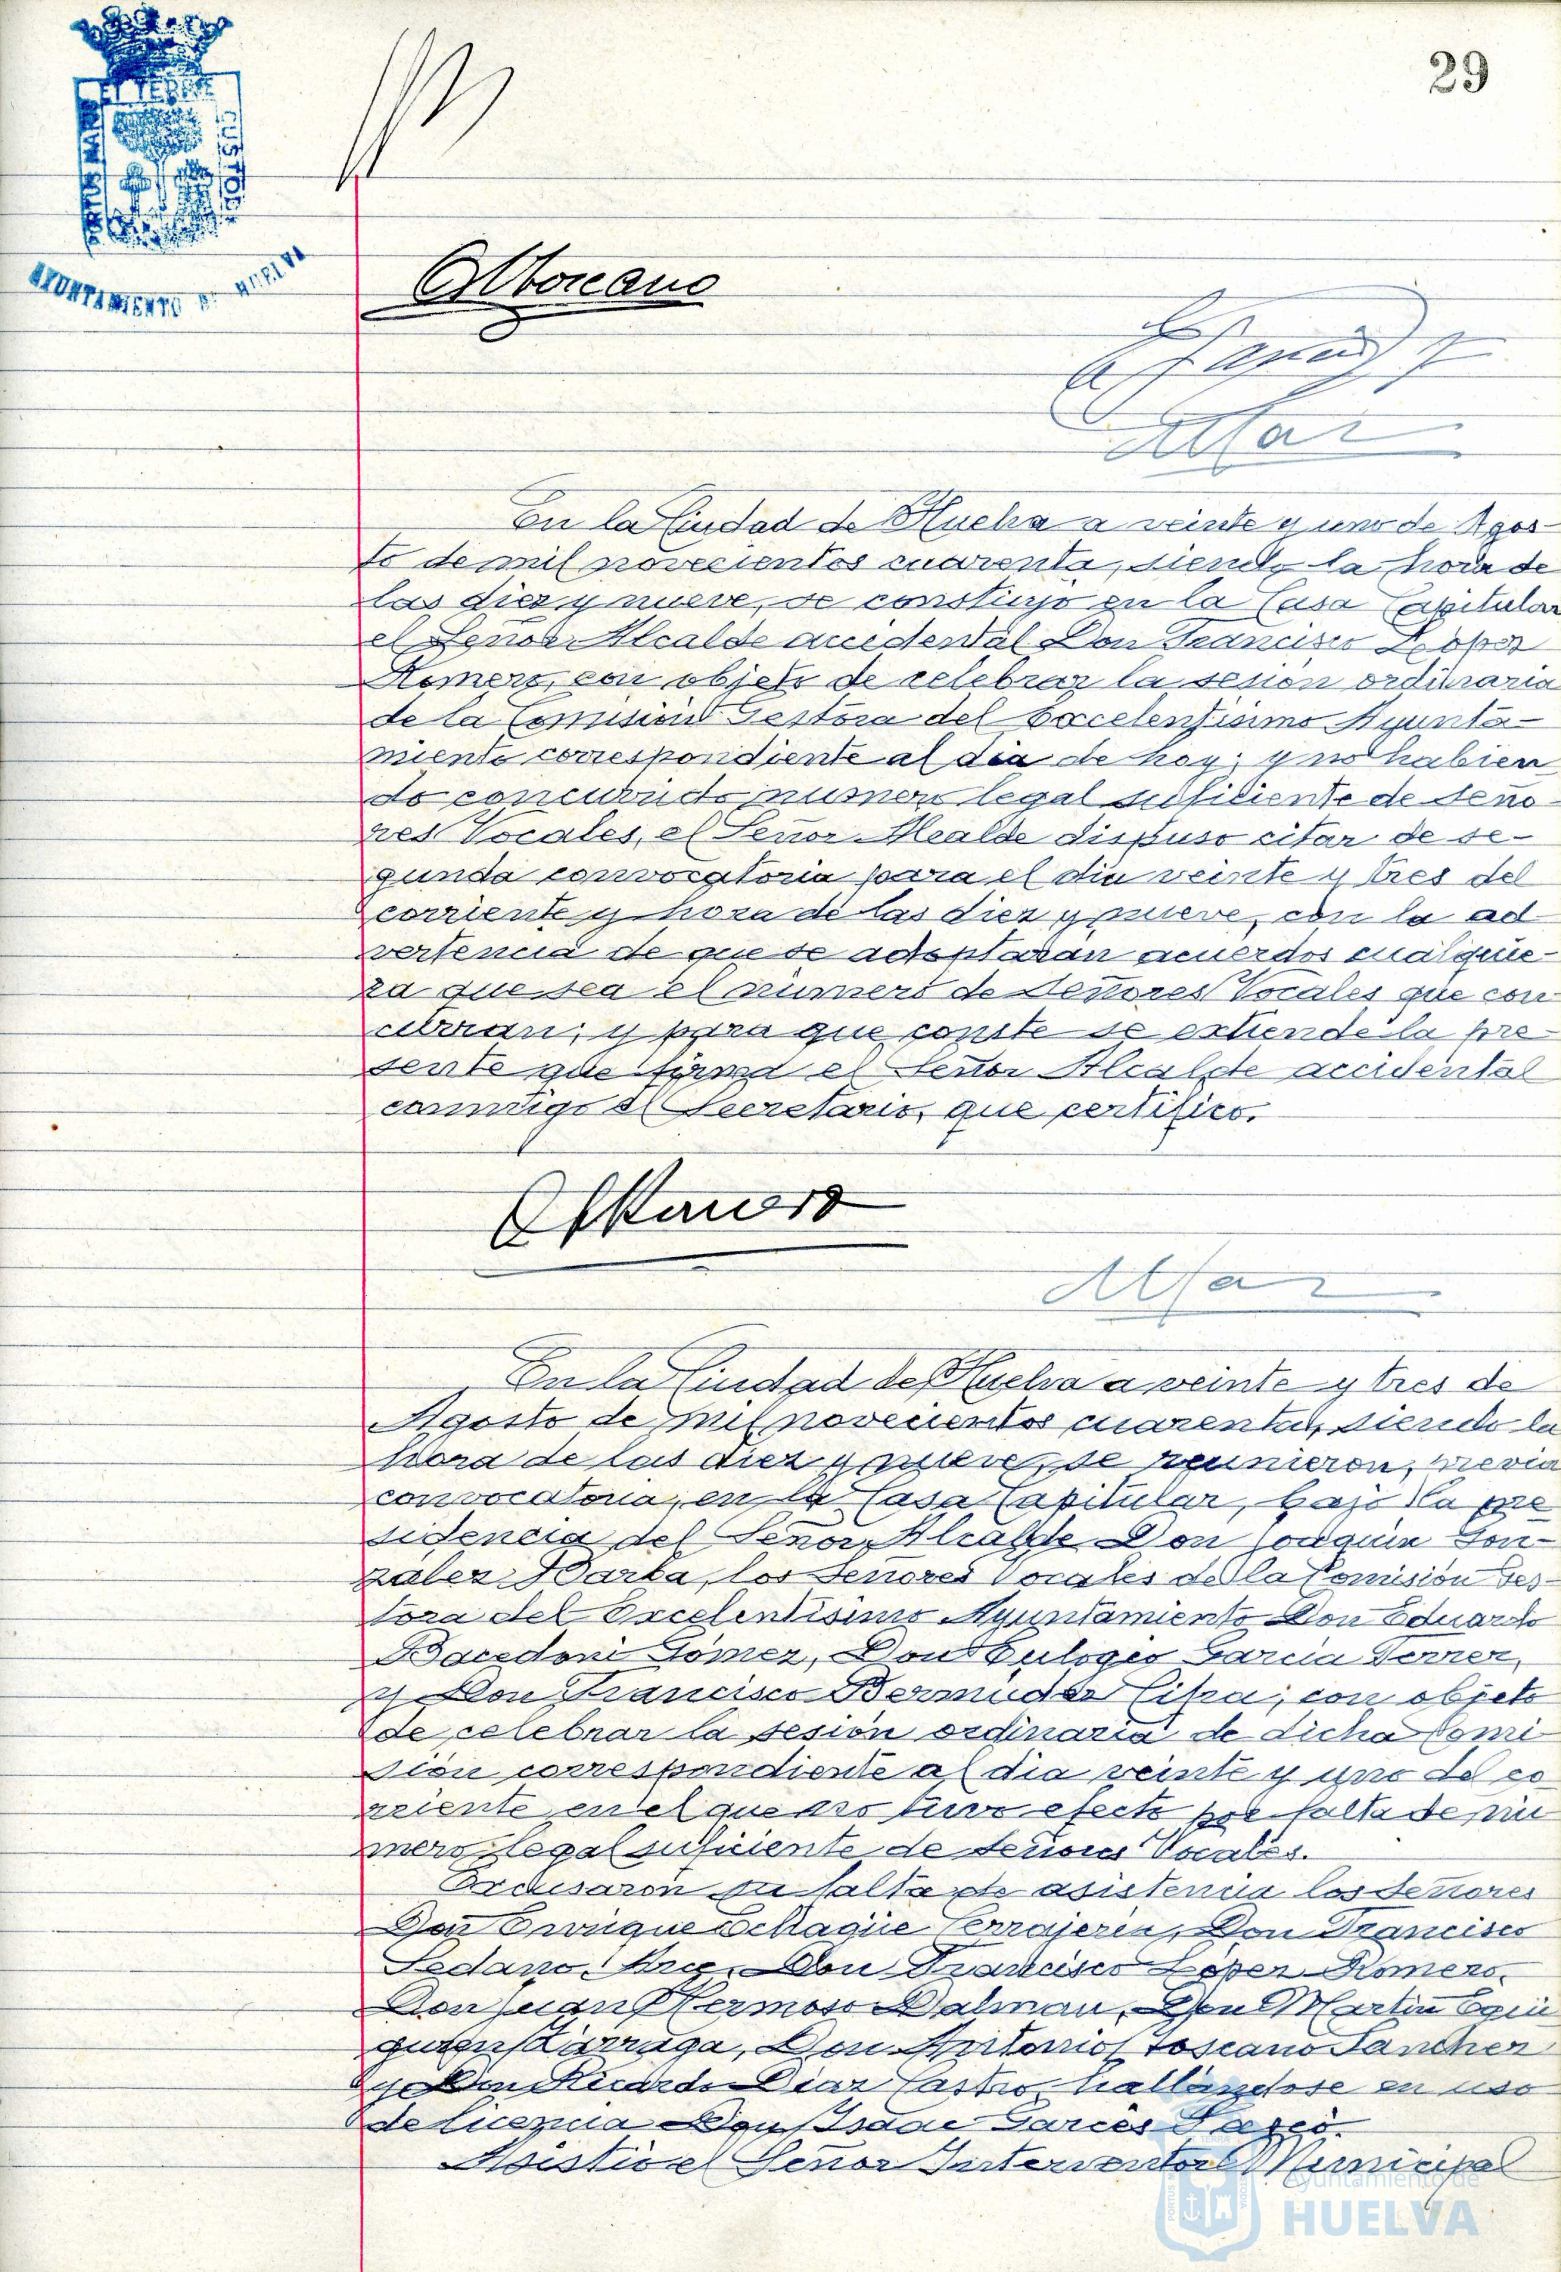 29
PORTUS MARIS
ET TERRE
CUSTODIA
AYUNTAMIENTO DE HUELVA
A Toscano
En la Ciudad de Huelva a veinte y uno de Agos-
to de mil novecientos cuarenta, siendo la hora de
las diez y nueve, se constituyo en la Casa Capitular
el Señor Alcalde accidental Don Francisco López
Romero, con objeto de celebrar la sesion ordinaria
de la Comisión Gestora del Excelentísimo Ayunta-
miento correspondiente al dia de hoy; y no habien
do concurrido numero legal suficiente de Seño-
res Vocales, el Señor Alcalde dispuso citar de se-
gunda convocatoria para el dia veinte y tres del
corriente y hora de las diez y nueve, con la ad
vertencia de que se adoptarán acuerdos cualquie-
ra que sea el número de Señores Vocales que con
curran; y para que conste se extiende la pre-
sente que firma el Señor Alcalde accidental
conmigo el Secretario, que certifico.
En la Ciudad de Huelva a veinte y tres de
Agosto de mil novecientos cuarenta, siendo la
hora de las diez y nueve, se reunieron, previa
convocatoria, en la Casa Capitular, bajo la pre
sidencia del Señor Alcalde Don Joaquin Gon-
zalez Barba, los Señores Vocales de la Comisión Ges-
tora del Excelentísimo Ayuntamiento Don Eduardo
Bacedoni Gómez, Don Eulogio Garcia Ferrer,
y Don Francisco Bermudez Cifra; con objeto
de celebrar la sesión ordinaria de dicha Comi
sión correspondiente al dia veinte y uno del co
rriente en el que no tuvo efecto por falta de nú
mero legal suficiente de Señores Vocales.
Excusaron su falta de asistencia los Señores
Don Enrique Echagüe Cerrajeria, Don Francisco
Sedano Don Francisco López Romero,
Don Juan Hermoso Dalmau, Don Martin Egui
guren Lárraga, Don Antonio Toscano Sanchez
y Don Ricardo Diaz Castro, hallándose en uso
de licencia Don Isaac Garces
Asistió el Señor Interventor Municipal
Ayuntamiento de
HUELVA